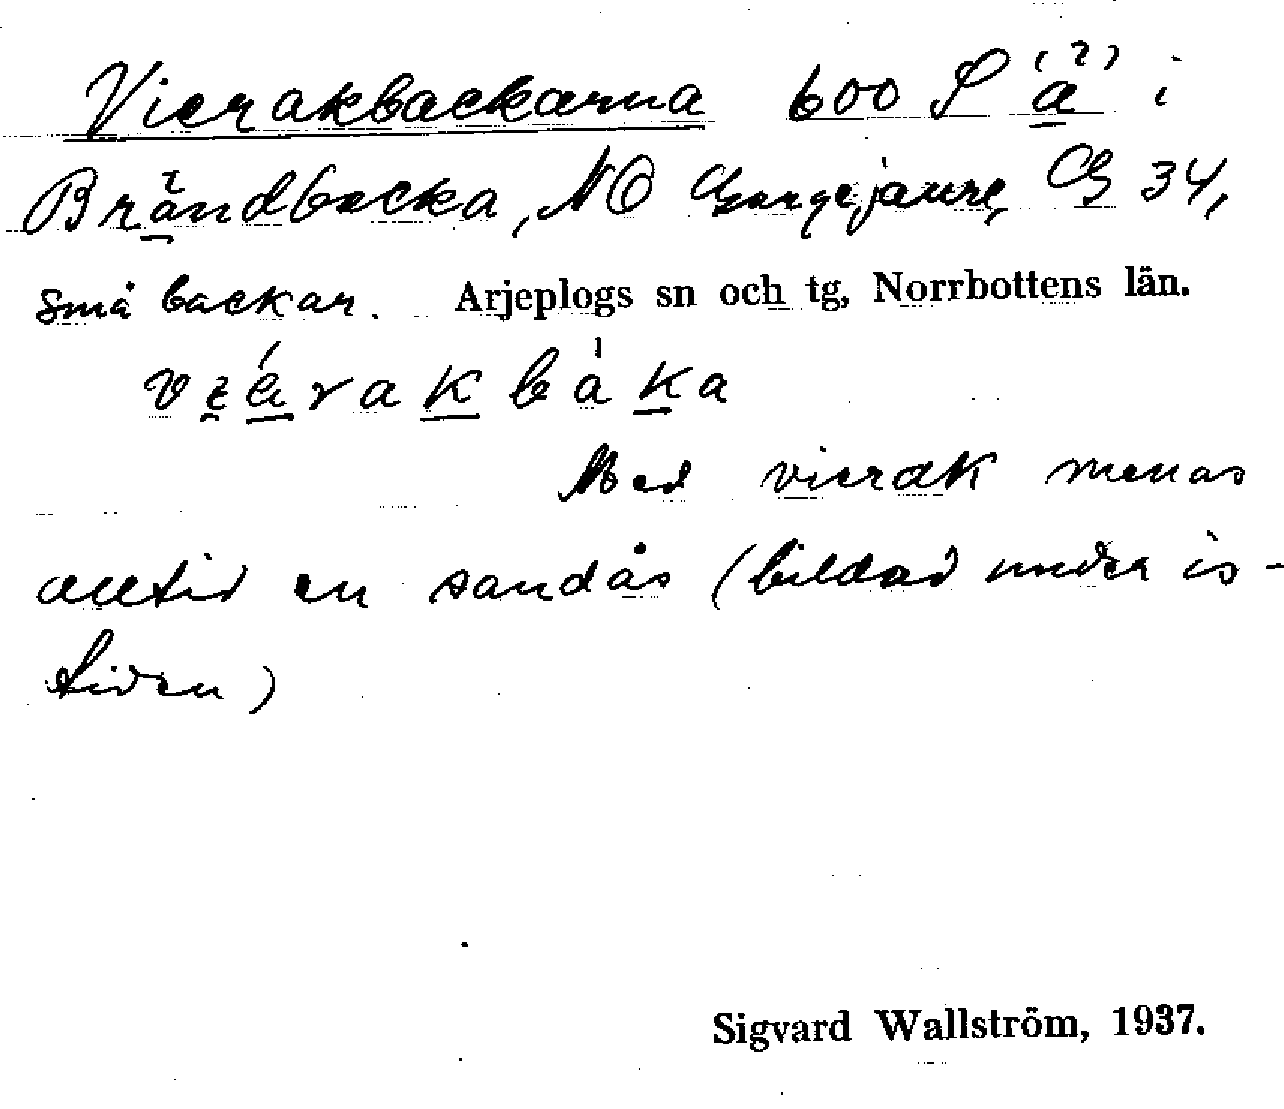 Vierakbackarna 600 S ä (?) i
Brändbacka, NO Gargejaure, G 34,
små backar. Arjeplogs sn och tg, Norrbottens län.
Med vierak menas
alltid en sandås (bildad under is-
tiden)
Sigvard Wallström, 1937.